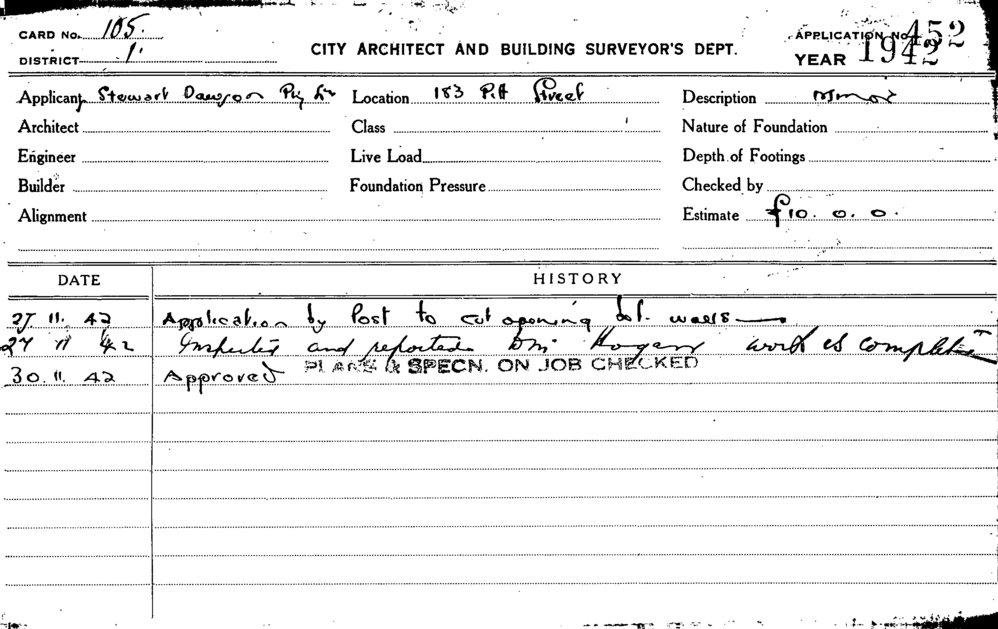 CARD No. 105.
DISTRICT 1.
CITY ARCHITECT AND BUILDING SURVEYOR'S DEPT.
APPLICATION No. 452
YEAR 1942
Applicant Stewart Dawson Pty Ltd Location 183 Pitt Street Description Minor
Architect Class Nature of Foundation
Engineer Live Load Depth of Footings
Builder Foundation Pressure Checked by
Alignment Estimate £10. 0. 0.
DATE HISTORY
27. 11. 42 Application by Post to cut opening bet. walls
27 11 42 Inspected and reported Hogan work is complete
30. 11. 42 Approved PLANS & SPECN. ON JOB CHECKED